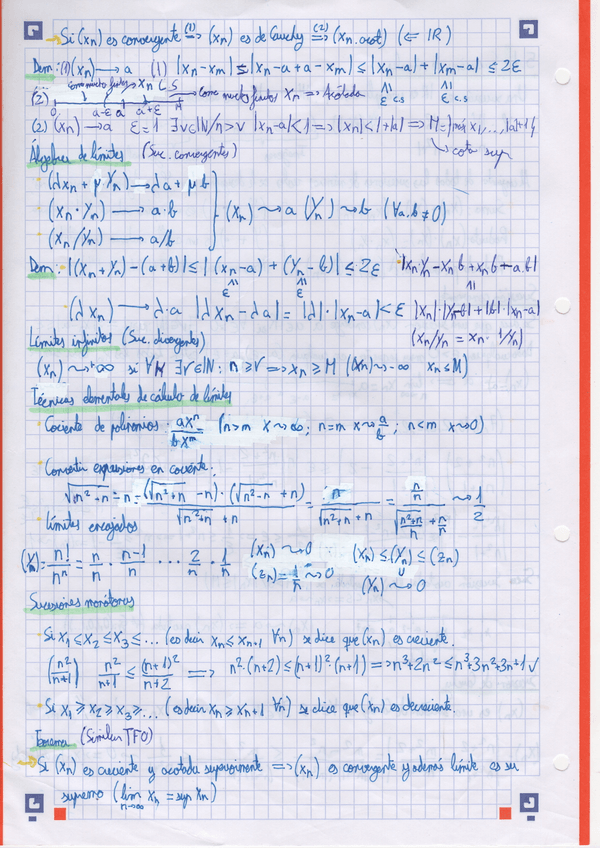 Si (xn) es convergente (1)=> (xn) es de Cauchy (2)=> (xn acot) (<= IR)
Dem: (1) (xn) → a (1) |xn-xm| ≤ |xn-a+a-xm| ≤ |xn-a| + |xm-a| ≤ 2ε
ε c.s ε c.s
(2) 0 a-ε a a+ε como mucho finitos xn => Acotada
(2) (xn) → a ε=1 ∃ν∈IN/n>ν |xn-a|<1 => |xn|<1+|a| => M = máx x1,...,|a|+1
cota sup
Álgebra de límites (Suc. convergentes)
(λxn + μYn) → λa + μb
(xn·Yn) → a·b (xn) ~> a (Yn) ~> b (∀a,b≠0)
(xn/Yn) → a/b
Dem: |(xn+Yn)-(a+b)| ≤ |(xn-a) + (Yn-b)| ≤ 2ε |xn·Yn - xn b + xn b - a·b|
ε ε
(λxn) → λ·a |λxn-λa| = |λ|·|xn-a| < ε |xn|·|Yn-b|+|b|·|xn-a|
(xn/Yn = xn · 1/Yn)
Límites infinitos (Suc. divergentes)
(xn) ~> +∞ si ∀M ∃ν∈IN: n≥ν => xn ≥ M (xn) ~> -∞ xn ≤ M)
Técnicas elementales de cálculo de límites
Cociente de polinomios: ax^n/bx^m (n>m x~>∞; n=m x~> a/b; n<m x~>0)
Convertir expresiones en cociente:
√(n²+n) - n = (√(n²+n) - n)·(√(n²-n) + n) / (√(n²+n) + n) = n / (√(n²+n) + n) = (n/n) / (√((n²+n)/n) + n/n) ~> 1/2
Límites encajados
(Yn) = n!/n^n = n/n · n-1/n ··· 2/n · 1/n (xn) ~> 0 (xn) ≤ (Yn) ≤ (zn)
(zn) = 1/n ~> 0 (Yn) ~> 0
Sucesiones monótonas
Si x1 ≤ x2 ≤ x3 ≤ ... (es decir xn ≤ xn+1 ∀n) se dice que (xn) es creciente.
(n²/n+1) n²/n+1 ≤ (n+1)²/n+2 => n²·(n+2) ≤ (n+1)²·(n+1) => n³+2n² ≤ n³+3n²+3n+1 √
Si x1 ≥ x2 ≥ x3 ≥ ... (es decir xn ≥ xn+1 ∀n) se dice que (xn) es decreciente.
Teorema (Similar TFO)
Si (xn) es creciente y acotada superiormente => (xn) es convergente y además límite es su
supremo (lim n→∞ xn = sup xn)